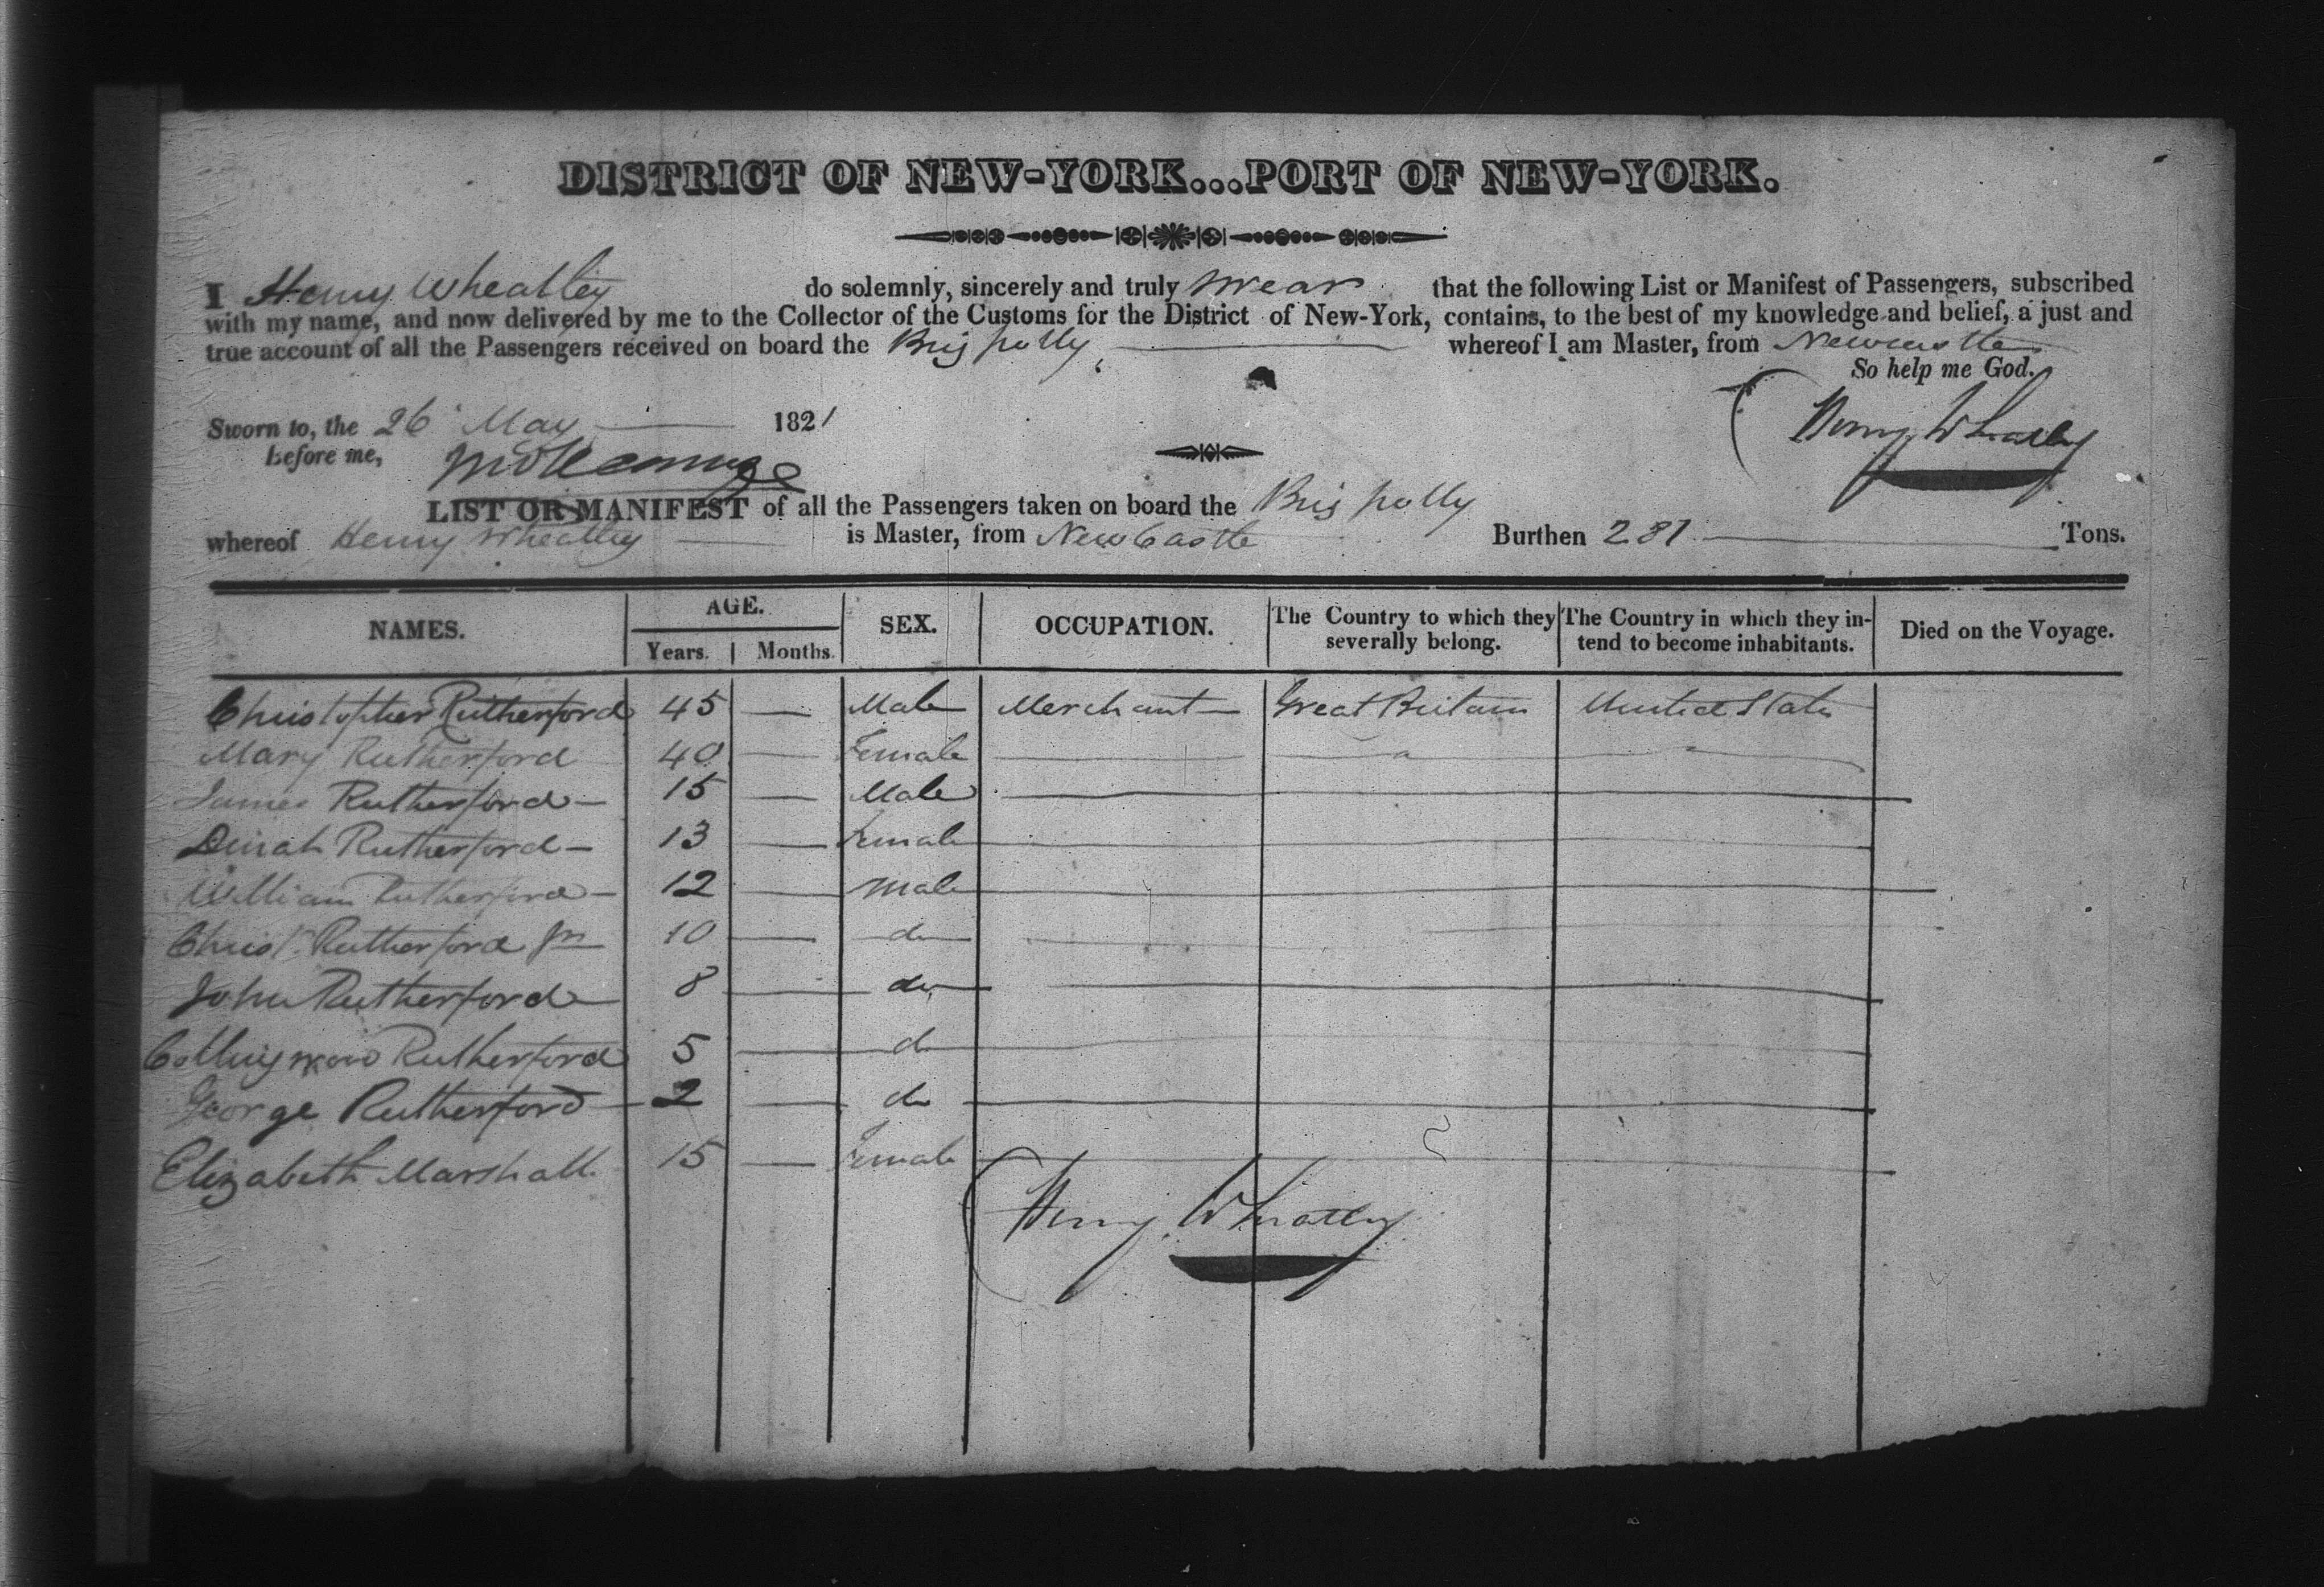 DISTRICT OF NEW-YORK...PORT OF NEW-YORK.
I Henry Wheatley do solemnly, sincerely and truly swear that the following List or Manifest of Passengers, subscribed
with my name, and now delivered by me to the Collector of the Customs for the District of New-York, contains, to the best of my knowledge and belief, a just and
true account of all the Passengers received on board the Brig Polly, whereof I am Master, from Newcastle
So help me God.
Sworn to, the 26 May 1821
Henry Wheatley
before me,
LIST OR MANIFEST of all the Passengers taken on board the Brig Polly
whereof Henry Wheatley is Master, from NewCastle Burthen 281 Tons.
NAMES. AGE. SEX. OCCUPATION. The Country to which they severally belong. The Country in which they intend to become inhabitants. Died on the Voyage.
Years. Months.
Christopher Rutherford 45 — Male Merchant Great Britain United States
Mary Rutherford 40 — Female
James Rutherford — 15 — Male
Dinah Rutherford — 13 — Female
William Rutherford — 12 — Male
Chrisr. Rutherford Jn 10 — do
John Rutherford 8 — do
Collingwood Rutherford 5 — do
George Rutherford 2 — do
Elizabeth Marshall 15 — Female
Henry Wheatley